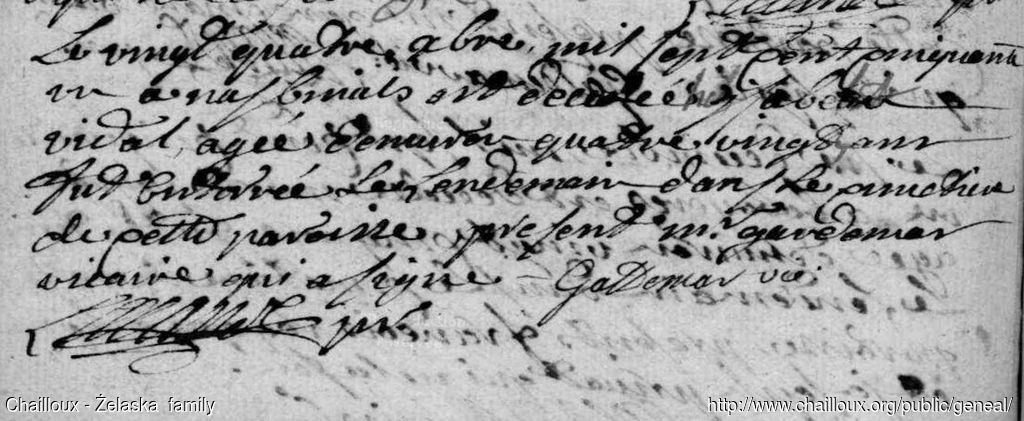 Le vingt quatre abre mil sept cent cinquante
un a nasbinals est decedeé isabeau
vidal, ageé denviron quatre vingts ans
fut enterrée le lendemain dans le cimetiere
de cette paroisse, present mr gardemar
vicaire qui a signe GaDemar vic
pr
Chailloux - Żelaska family
http://www.chailloux.org/public/geneal/